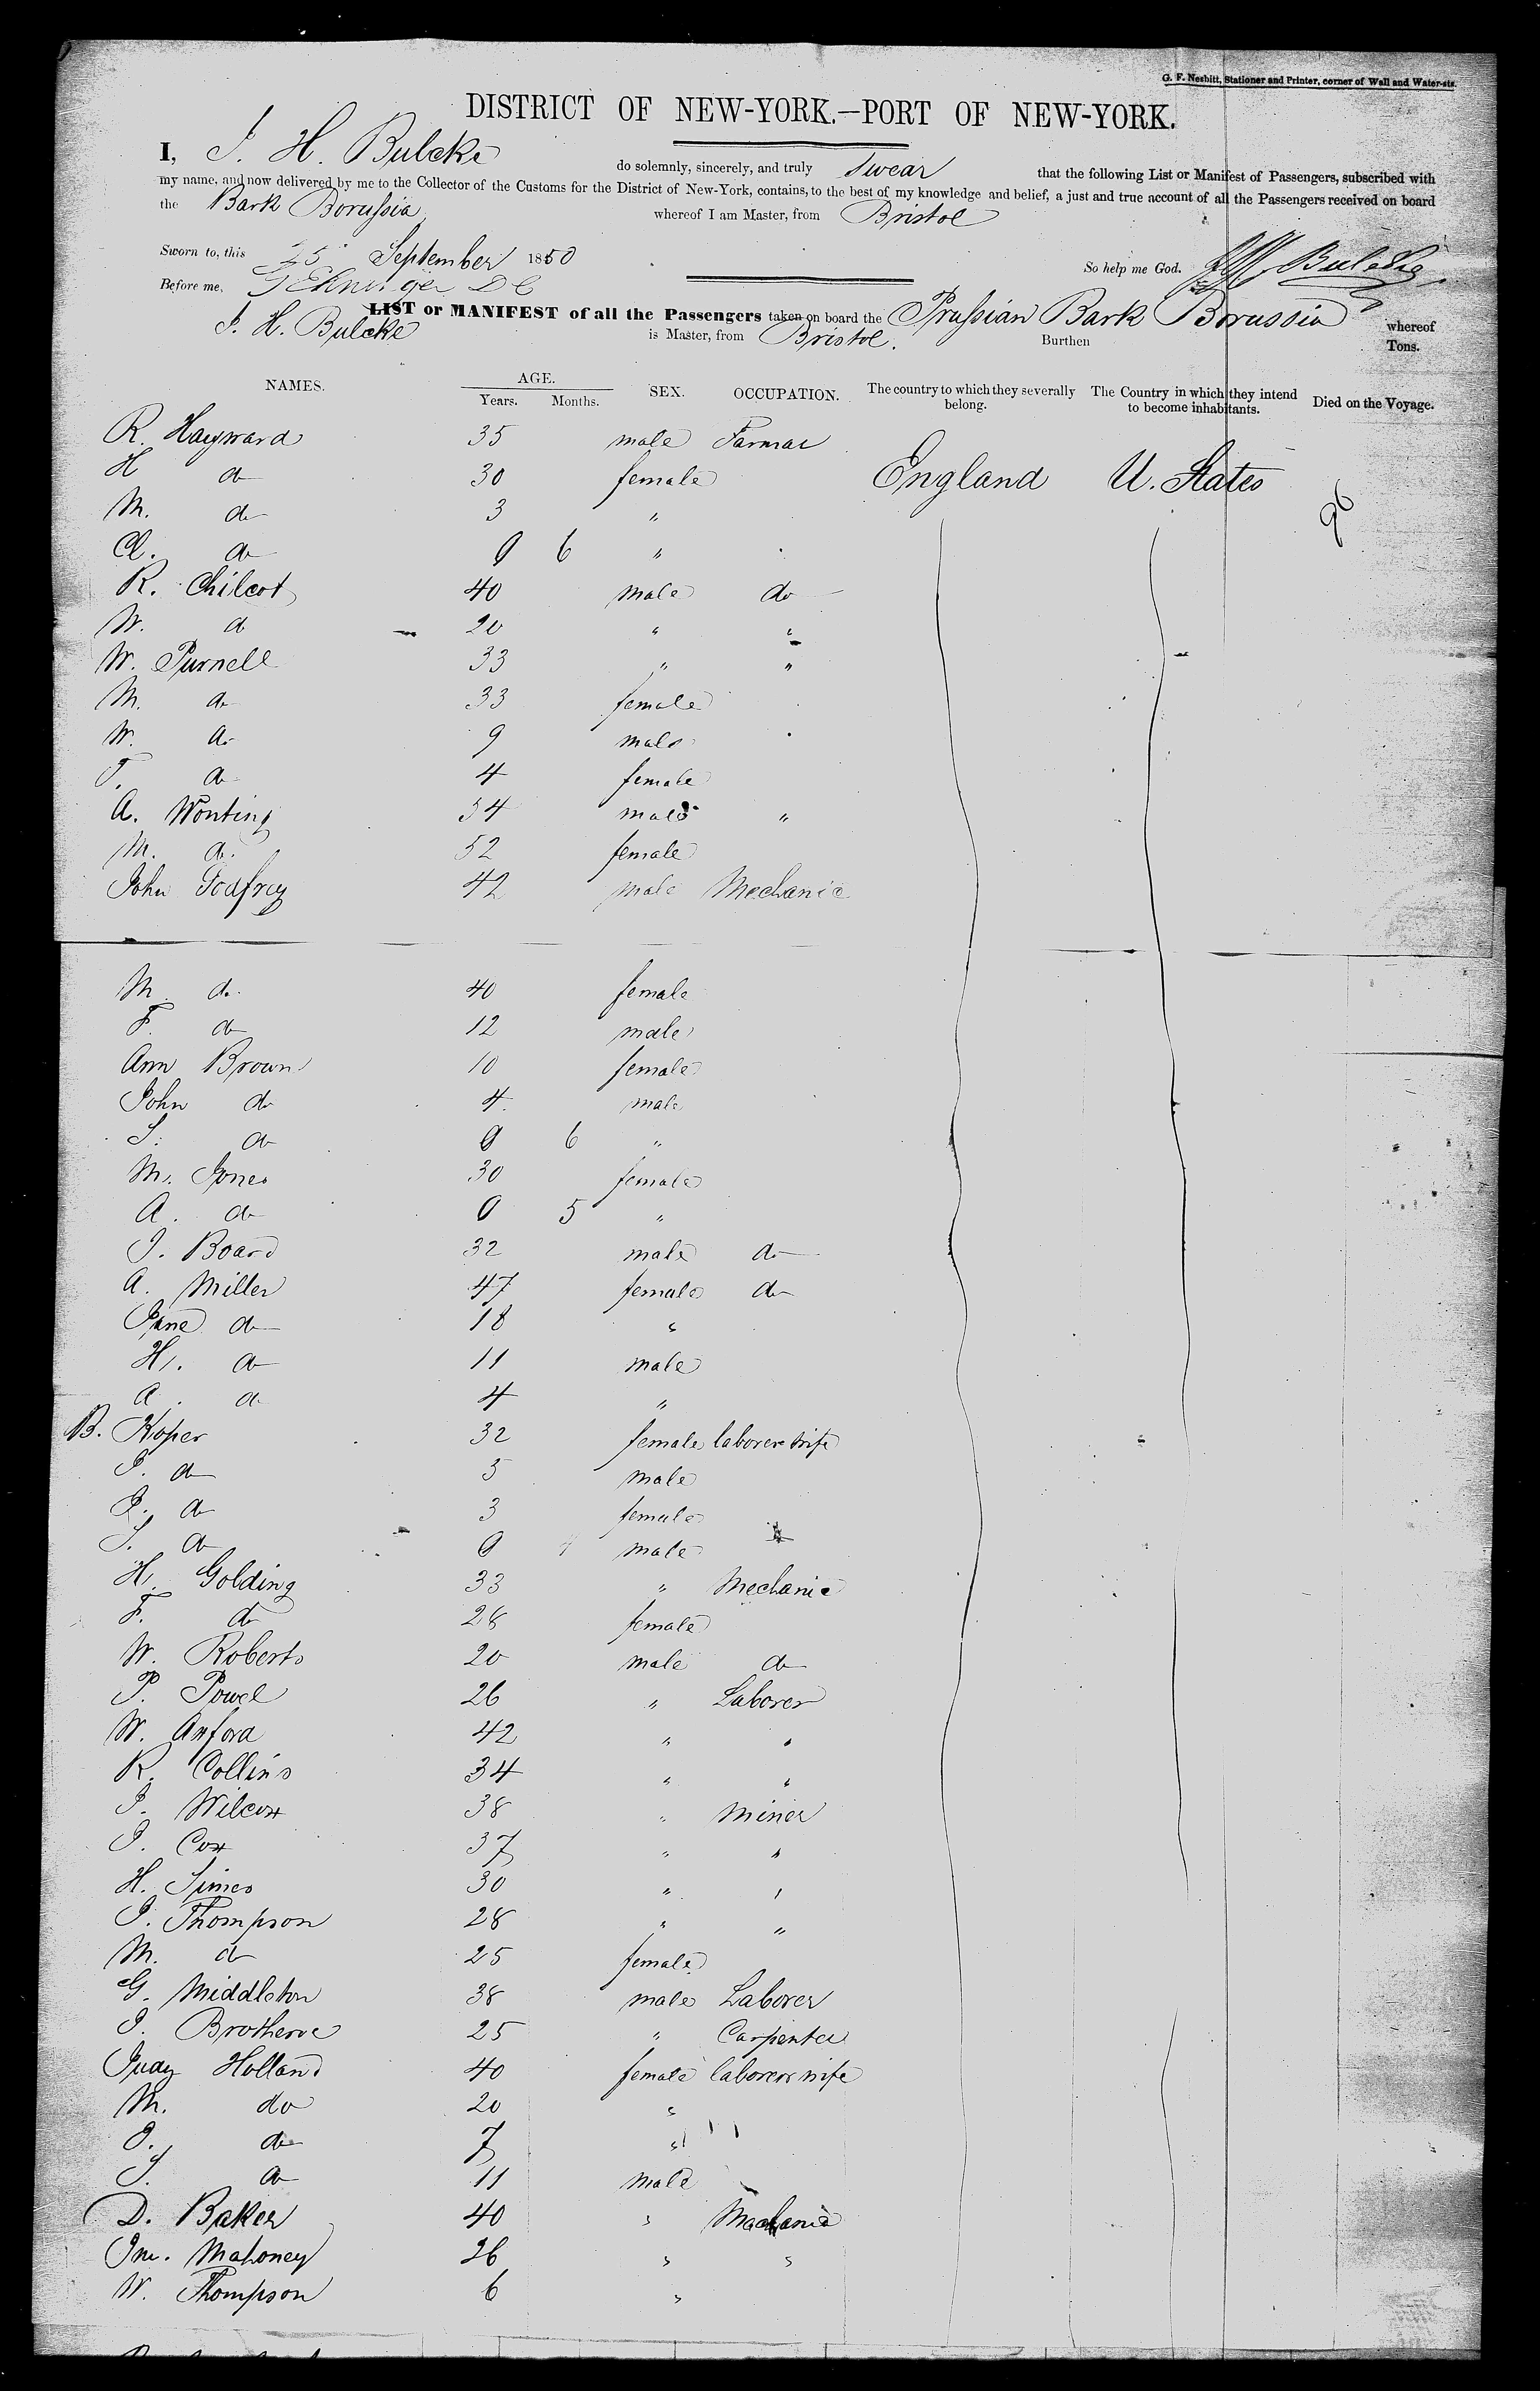 G. F. Nesbitt, Stationer and Printer, corner of Wall and Water-sts.
DISTRICT OF NEW-YORK.—PORT OF NEW-YORK.
I, J. H. Bulcke do solemnly, sincerely, and truly swear that the following List or Manifest of Passengers, subscribed with
my name, and now delivered by me to the Collector of the Customs for the District of New-York, contains, to the best of my knowledge and belief, a just and true account of all the Passengers received on board
the Bark Borussia whereof I am Master, from Bristol
Sworn to, this 25 September 1850
So help me God. JH Bulcke
Before me,
LIST or MANIFEST of all the Passengers taken on board the Prussian Bark Borussia whereof
J. H. Bulcke is Master, from Bristol. Burthen Tons.
NAMES. AGE. Years. Months. SEX. OCCUPATION. The country to which they severally belong. The Country in which they intend to become inhabitants. Died on the Voyage.
R. Hayward 35 male Farmer
H do 30 female England U. States
M. do 3 " 96
Cl. do 0 6 "
R. Chilcot 40 male do
W. do 20 " "
W. Purnell 33 " "
M. do 33 female
W. do 9 male
T. do 4 female
A. Wonting 34 male "
M. do. 52 female
John Godfrey 42 male Mechanic
M. do. 40 female
F. do 12 male
Ann Brown 10 female
John do 4 male
S. do 0 6 "
M. Jones 30 female
A. do 0 5 "
J. Board 32 male do
A. Miller 47 female do
Jane do 18 "
H. do 11 male
A. do 4 "
B. Koper 32 female laborers wife
J. do 5 male
J. do 3 female
S. do 0 male
H. Golding 33 " Mechanic
F. do 28 female
W. Roberts 20 male do
P. Powel 26 " Laborer
W. Axford 42 " "
R. Collins 34 " "
J. Wilcox 38 " Miner
J. Cox 37 " "
H. Simes 30 " "
J. Thompson 28 " "
M. do 25 female
G. Middleton 38 male Laborer
J. 25 " Carpenter
Judy Holland 40 female laborers wife
M. do 20 "
J. do 7 "
S. do 11 male
D. Baker 40 " Mechanic
Jm. Mahoney 26 " "
W. Thompson 6 "